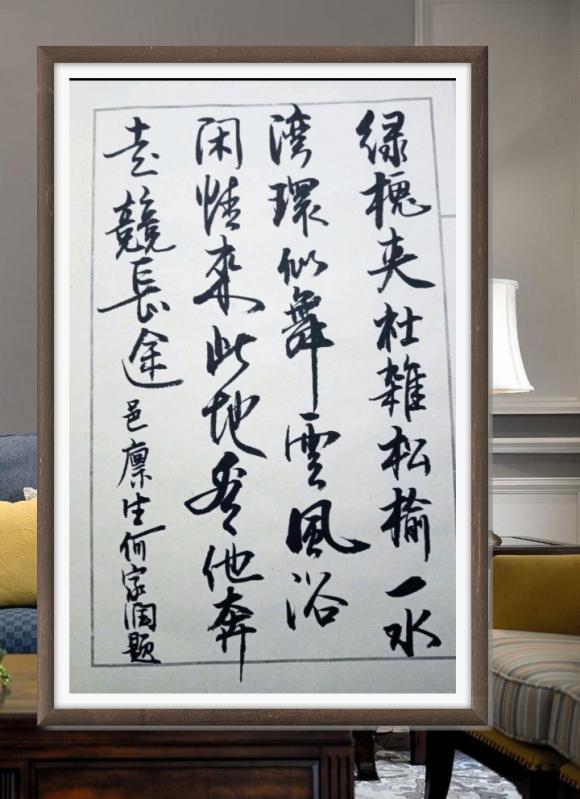 绿槐夹杜雜松榆一水
湾環似舞雲風浴
闲情来此地看他奔
走競長途邑廪生何家润题